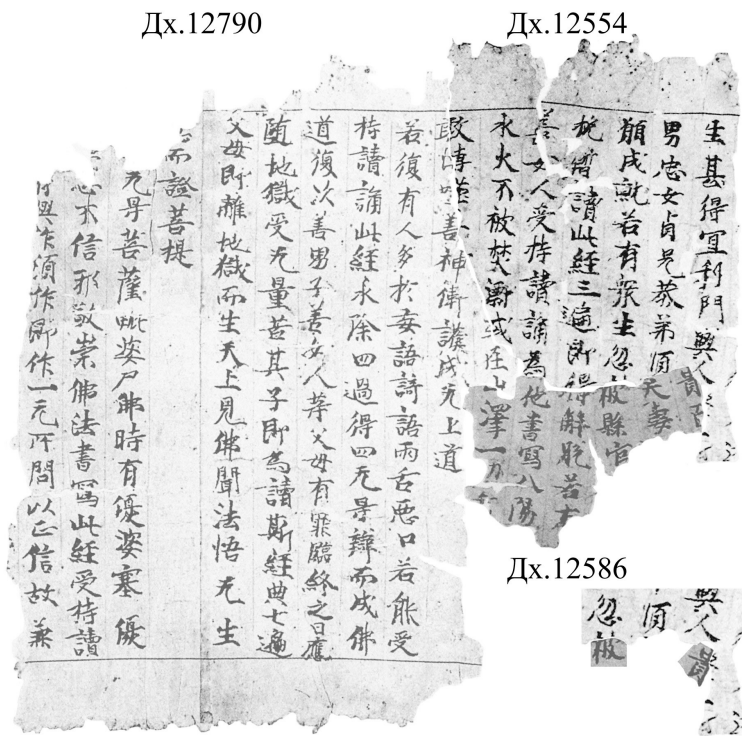 Дх.12790
Дх.12554
生甚得宜利門興人貴
男忠女貞兄恭弟順夫妻
願成就若有衆生忽被縣官
暫讀此經三遍即得解脫若
善女人受持讀誦為他書寫八陽
水火不被焚漂或在山澤一
善神衛護成无上道
若復有人多於妄語綺語兩舌惡口若能受
持讀誦此經永除四過得四无导辯而成佛
道復次善男子善女人等父母有罪臨終之日應
墮地獄受无量苦其子即為讀斯經典七遍
父母即離地獄而生天上見佛聞法悟无生
而證菩提
无导菩薩毗婆尸佛時有優婆塞優
心不信邪敬崇佛法書寫此經受持讀
興作須作即作一无所問以正信故兼
Дх.12586
興人貴
順
忽被